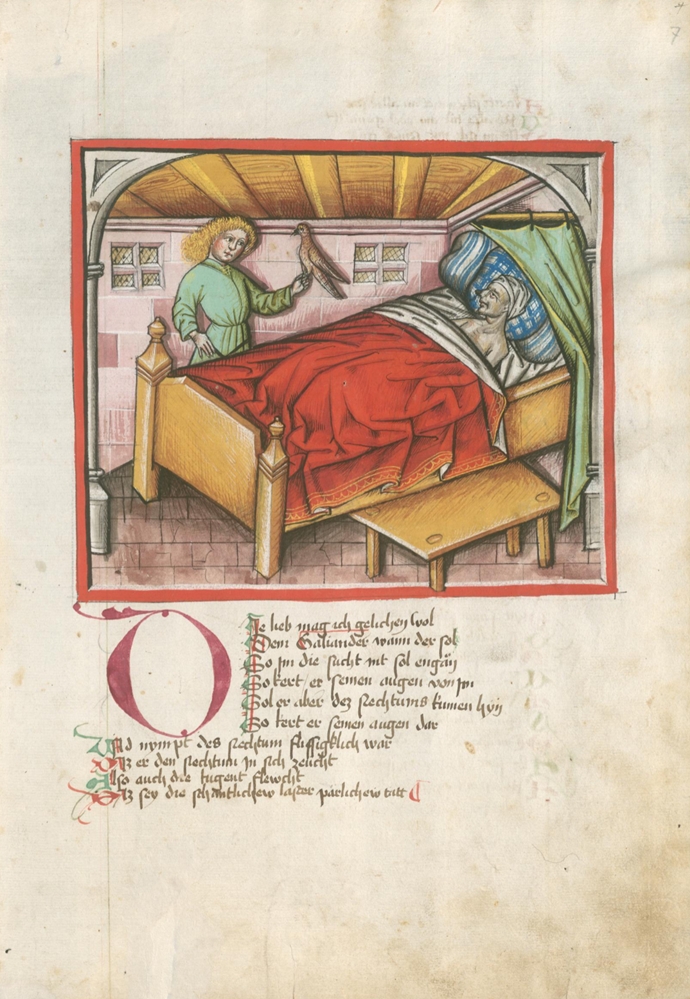 7
DIe lieb mag ich gelichen wol
Dem Galiander wann der sol
So im die sucht nit sol engan
So kert er seinen augen von im
Sol er aber dez siechtums kumen hyn
So kert er seinen augen dar
Vnd nympt des siechtum flissigklich war
Biz er den siechtum in sich zeucht
Also auch die tugent flewcht
sey die schantlichew laster